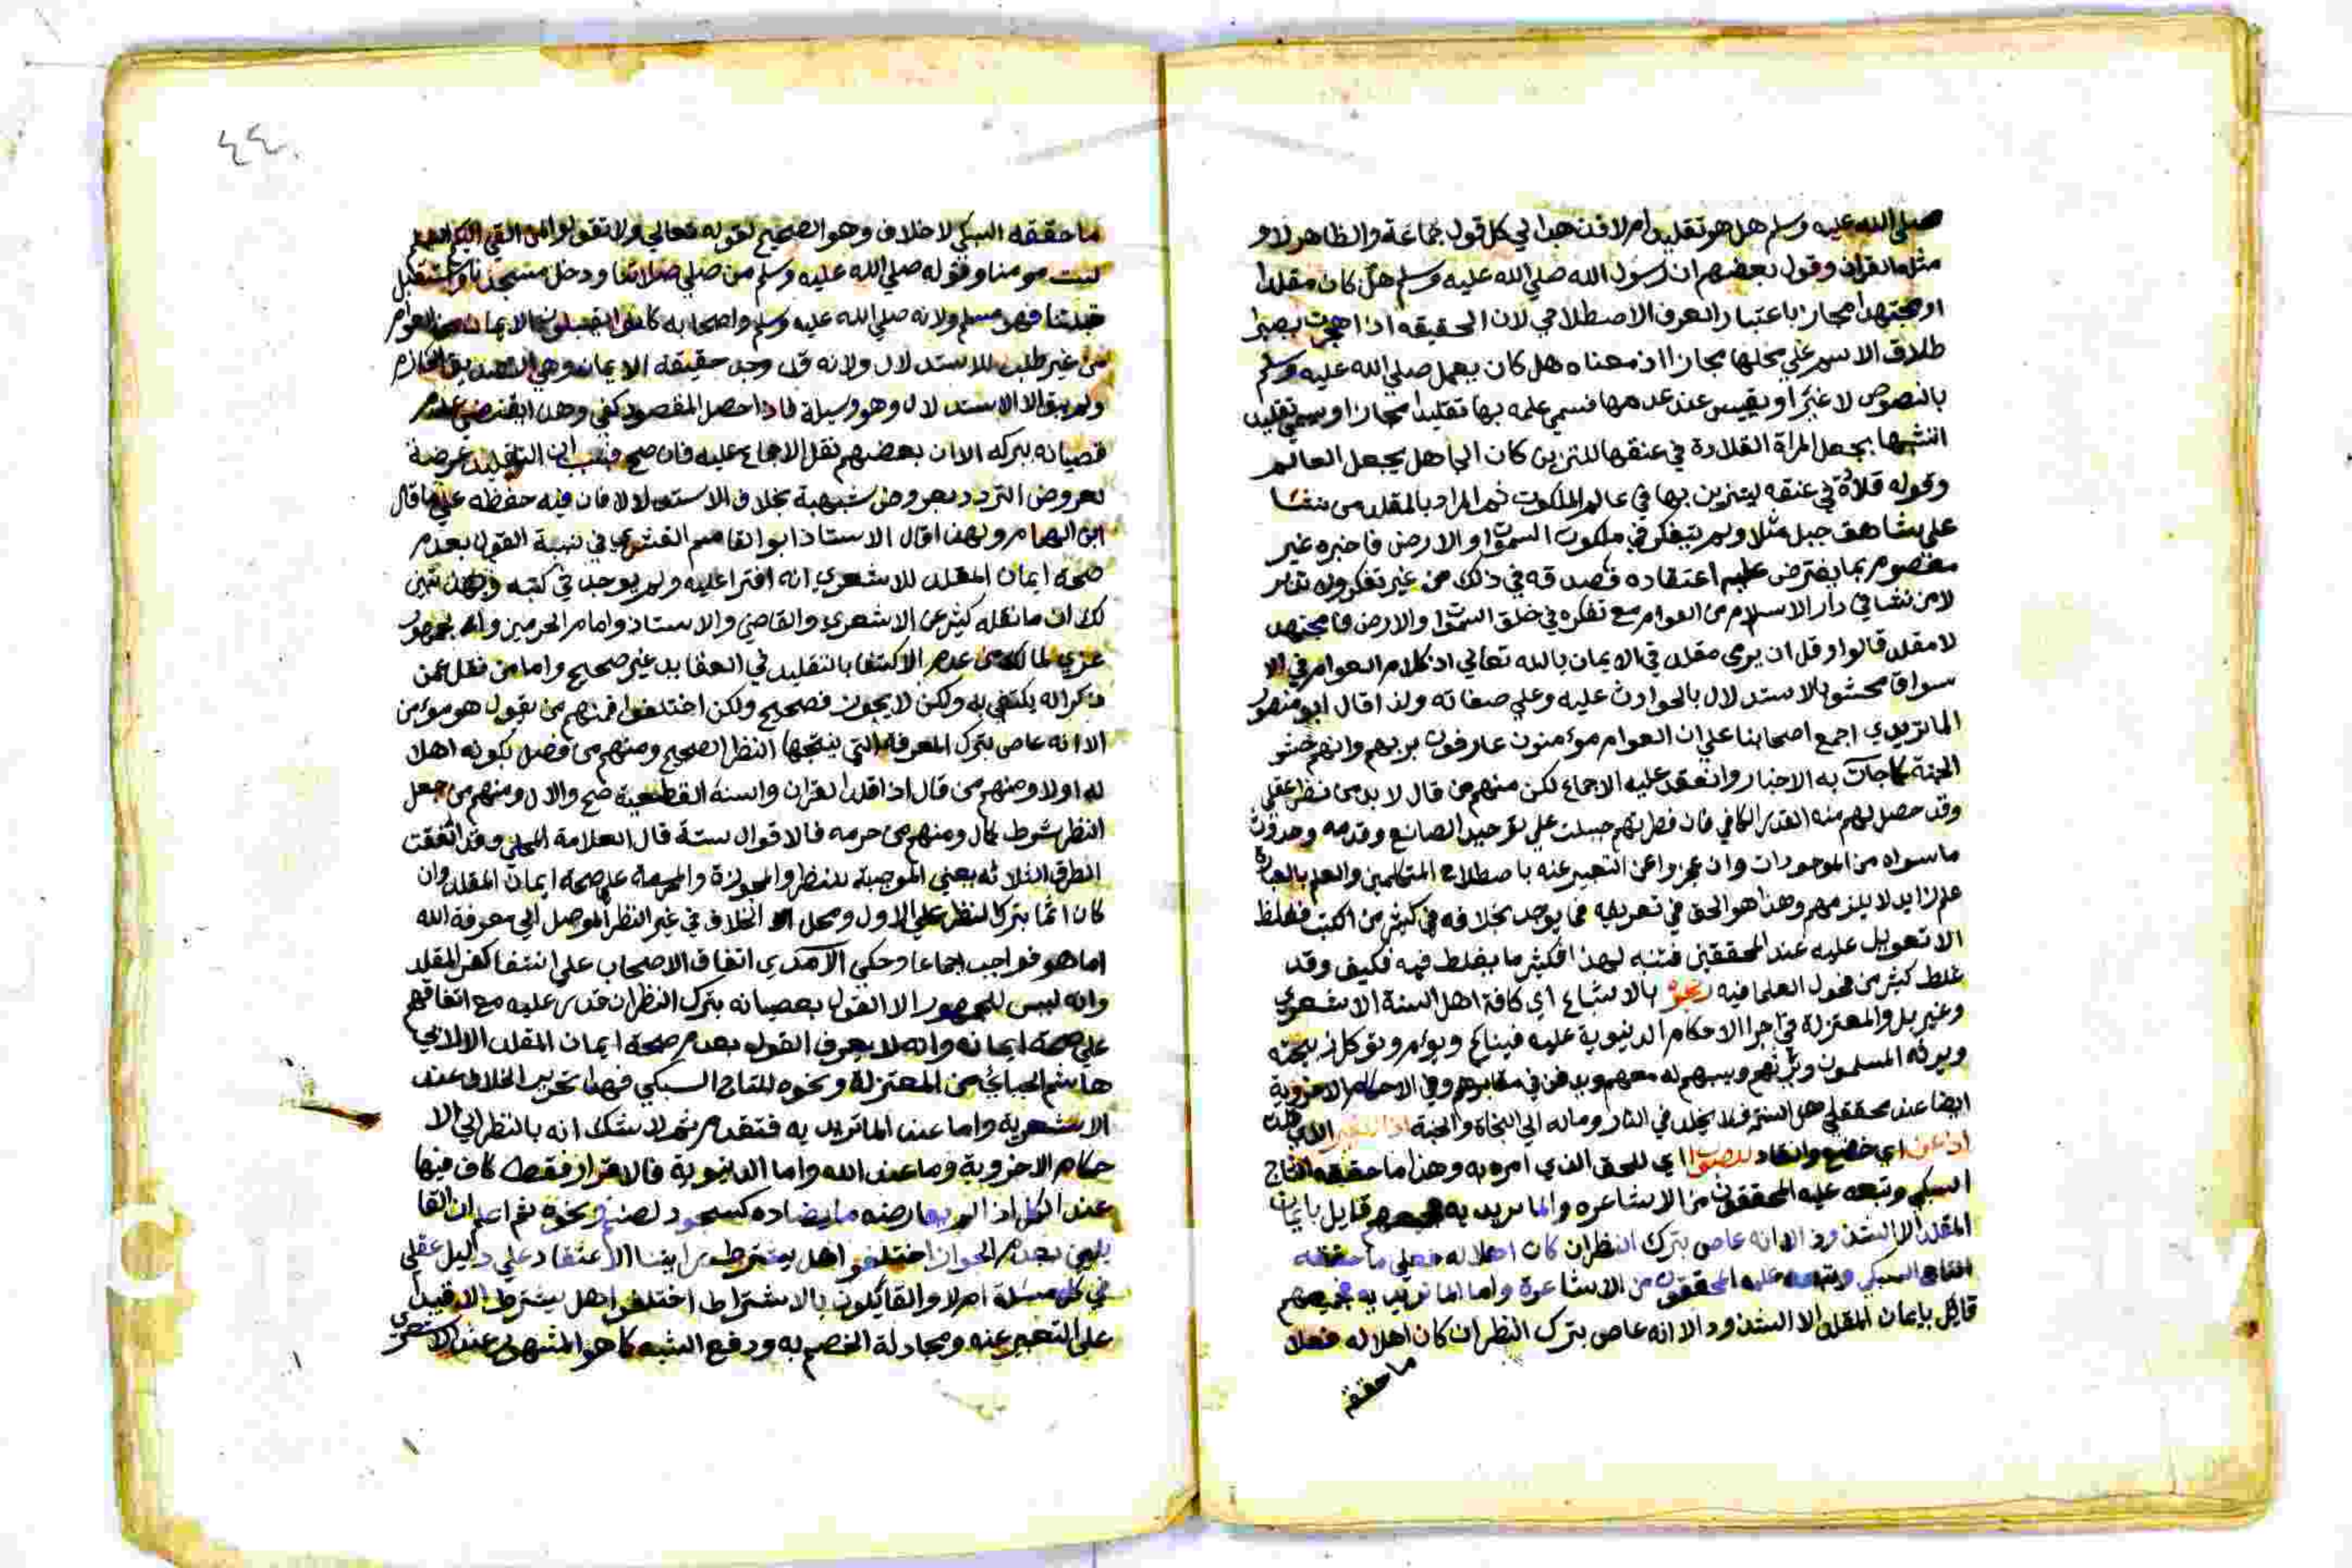 صلى الله عليه وسلم هل هو تقليد ام لا فذهب الي كل قول جماعة والظاهر لا و
مثله القران وقول بعضهم ان رسول الله صلي الله عليه وسلم هل كان مقلدا
او مجتهدا مجاز باعتبار العرف الاصطلاحي لان الحقيقه اذا هجرت يصير
طلاق الاسم علي محلها مجازا اذ معناه هل كان يعمل صلي الله عليه وسلم
بالنصوص لا غير او يقيس عند عدمها فسمي علمه بها تقليدا مجازا وسمي تقليد
تشبها بجعل المراة القلادة في عنقها للتزين كان الجاهل يجعل العالم
وقوله قلادة في عنقه ليتزين بها في عالم الملكوت ثم المراد بالمقلد من نشا
علي شاهق جبل مثلا ولم يتفكر في ملكوت السموات والارض فاخبره غير
معصوم بما يفترض عليه اعتقاده فصدقه في ذلك من غير تفكر ولا تدبر
لا من نشا في دار الاسلام من العوام مع تفكره في خلق السموات والارض فا مجتهد
لا مقلد قالوا وقل ان يرى مقلد في الايمان بالله تعالي اذ كلام العوام في الا
سواق محشو بالاستدلال بالحوادث عليه وعلي صفاته ولذا قال ابو منصور
الماتريدي اجمع اصحابنا علي ان العوام مؤمنون عارفون بربهم وانهم حشو
الجنة كما جات به الاخبار وانعقد عليه الاجماع لكن منهم من قال لا بد من نظر عقلي
وقد حصل لهم منه القدر الكافي فان فطرتهم جبلت علي توحيد الصانع وقدمه وحدوث
ما سواه من الموجودات وان عجزوا عن التعبير عنه باصطلاح المتكلمين والعلم بالعبارة
علم زايد لا يلزمهم وهذا هو الحق في تعريفه فما يوجد بخلافه في كثير من الكتب فغلظ
الا تعويل عليه عند المحققين فتنبه لهذا فكثير ما يغلط فيه فكيف وقد
غلط كثير من فحول العلما فيه بالاشباع اي كافة اهل السنة الاشعري
وغير بل والمعتزلة في اجرا الاحكام الدنيوية عليه فيناكح ويؤم وتوكل ذبيحته
ويرثه المسلمون ويرثهم ويسهم له معهم ويدفن في مقابرهم وفي الاحكام الاخروية
ايضا عند محققي اهل السنة فلا يخلد في النار وماله الي النجاة والجنة اذا
اذعن اي خضع وانقاد اي للحق الذي امره به وهذا ما حققه التاج
السبكي وتبعه عليه المحققون من الاشاعره والماتريديه فجميعهم قايل بايمان
المقلد الا الشذوذ الا انه عاص بترك النظر ان كان اهلا له فعلي ما حققه
التاج السبكي وتبعه عليه المحققون من الاشاعرة واما الماتريديه فجميعهم
قائل بايمان المقلد الا الشذوذ الا انه عاص بترك النظر ان كان اهلا له فعلا
ما حققه
٤٤
ما حققه السبكي لا خلاف وهو الصحيح لقوله تعالي ولا تقولوا لمن القي اليكم السلم
لست مومنا وقوله صلي الله عليه وسلم من صلي صلاتنا ودخل مسجدنا واستقبل
قبلتنا فهو مسلم ولانه صلي الله عليه وسلم واصحابه كانوا يقبلون الايمان من العوام
من غير طلب للاستدلال ولانه قد وجد حقيقة الايمان وهي التصديق الجازم
ولم يبق الا الاستدلال وهو وسيلة فاذا حصل المقصود كفي وهذا يقتضي عدم
عصيانه بتركه الا ان بعضهم نقل الاجماع عليه فان صح فسبب ان التقليد عرضة
لعروض التردد بعروض شبهة بخلاف الاستدلال فان فيه حفظه علي ما قال
ابن الهمام ولهذا قال الاستاذ ابو القاسم القشيري في نسبة القول بعدم
صحة ايمان المقلد للاشعري انه افترا عليه ولم يوجد في كتبه وبهذا تبين
لك ان ما نقله كثير عن الاشعري والقاضي والاستاذ وامام الحرمين والجمهور
عزي لمالك من عدم الاكتفا بالتقليد في العقايد غير صحيح واما من نقل عمن
ذكر انه يكتفي به ولكن لا يجوز فصحيح ولكن اختلفوا فمنهم من يقول هو مؤمن
الا انه عاص بترك المعرفة التي ينتجها النظر الصحيح ومنهم من فصل بكونه اهلا
له او لا ومنهم من قال اذا قلد القران والسنة القطعية صح والا لا ومنهم من جعل
النظر شرط كمال ومنهم من حرمه فالاقوال ستة قال العلامة المحلي وقد اتفقت
الطرق الثلاثه يعني الموجبة للنظر والمجوزة والمحرمة علي صحة ايمان المقلد وان
كان اثما بترك النظر علي الاول ومحل الخلاف في غير النظر الموصل الي معرفة الله
اما هو فواجب اجماعا وحكي الامدي اتفاق الاصحاب علي انتفا كفر المقلد
وانه ليس للجمهور الا القول بعصيانه بترك النظر ان قدر عليه مع اتفاقهم
علي صحة ايمانه وانه لا يعرف القول بعدم صحة ايمان المقلد الا لابي
هاشم الجبائي من المعتزلة ونحوه للتاج السبكي فهذا تحرير الخلاف عند
الاشعرية واما عند الماتريديه فتقدم ثم لا شك انه بالنظر الي الا
حكام الاخروية وما عند الله واما الدنيوية فالاقرار فقط كاف فيها
عند الكل اذا لم يعارضه ما يضاده كسجود لصنم ونحوه ثم اعلم ان القا
يلين بعدم الجواز اختلفوا هل يشترط ابتنا الاعتقاد علي دليل عقلي
في كل مسئلة ام لا والقايلون بالاشتراط اختلفوا هل يشترط الاقتدار
علي التعبير عنه ومجادلة الخصم به ودفع الشبه كما هو المشهور عند الاشعري